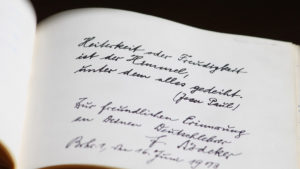 Heiterkeit oder Freudigkeit
ist der Himmel,
unter dem alles gedeiht.
(Jean Paul)
Zur freundlichen Erinnerung
an Deinen Deutschlehrer
F. Rödeker